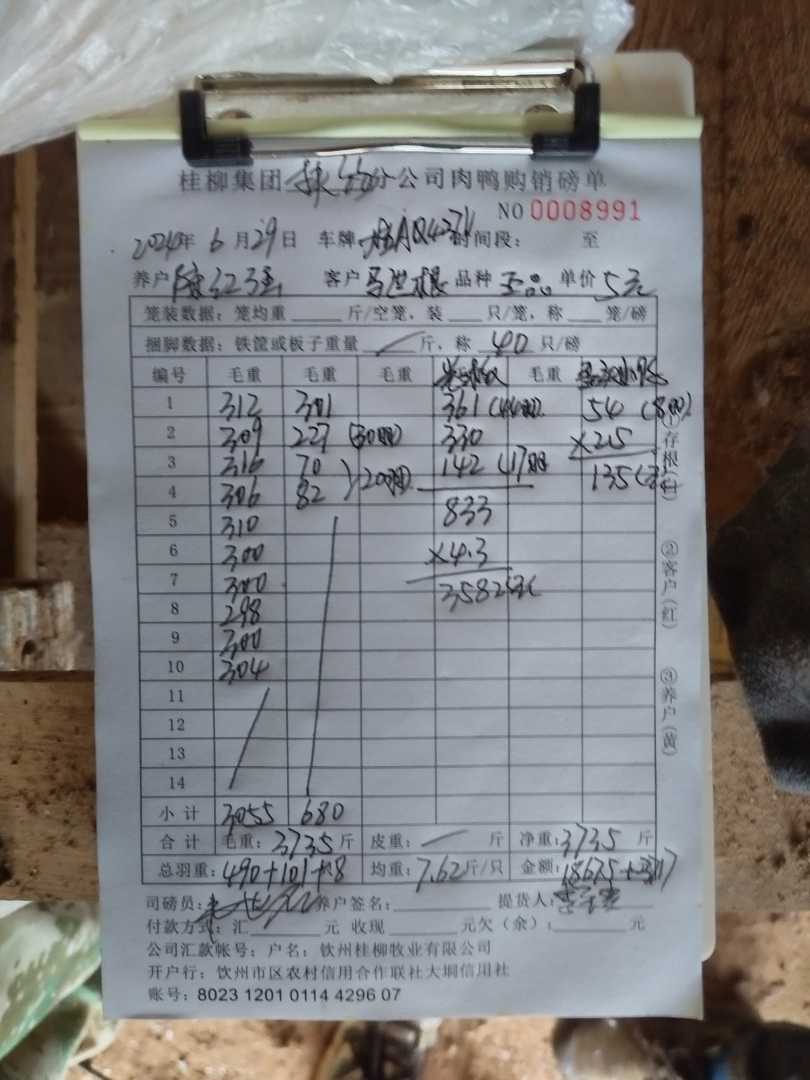 桂柳集团 分公司肉鸭购销磅单
NO 0008991
2024年 6月29日 车牌 AQ4271 时间段: 至
养户 陈红 客户 马世根 品种 王品 单价 5元
笼装数据: 笼均重 斤/空笼, 装 只/笼, 称 笼/磅
捆脚数据: 铁筐或板子重量 / 斤, 称 40 只/磅
编号 毛重 毛重 毛重 毛重
1 312 301 361 (44只) 54 (8只)
2 309 227 (30只) 330 ×2.5
3 316 70 142 (17只 135
4 306 82 }20只
5 310 833
6 300 ×4.3
7 300 3582
8 298
9 300
10 304
11
12
13
14
小计 3055 680
合计 毛重: 3735 斤 皮重: / 斤 净重: 3735 斤
总羽重: 490+101+8 均重: 7.62 斤/只 金额: 18675+3717
司磅员: 养户签名: 提货人:
付款方式: 汇 元 收现 元欠(余): 元
公司汇款帐号: 户名: 钦州桂柳牧业有限公司
开户行: 钦州市区农村信用合作联社大垌信用社
账号: 8023 1201 0114 4296 07
①存根(白)
②客户(红)
③养户(黄)